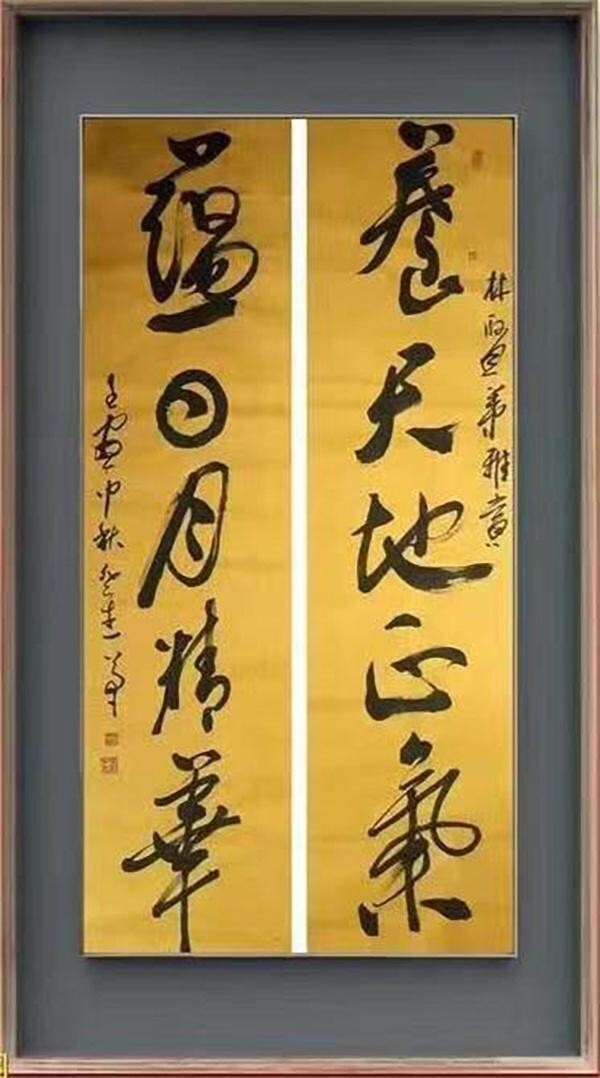 林弟雅賞
養天地正氣
蘊日月精華
壬寅中秋